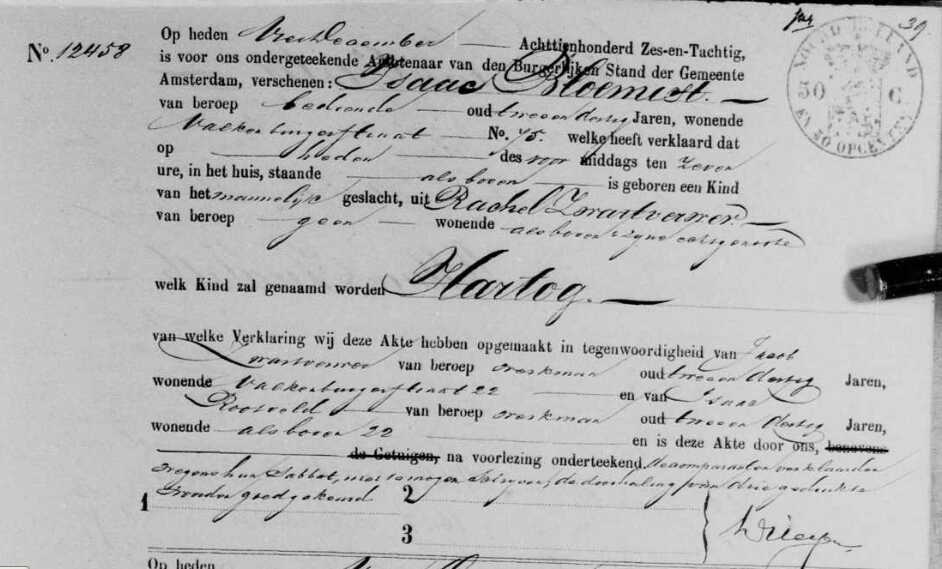 39
No. 12458
Op heden Vier December Achttienhonderd Zes-en-Tachtig,
is voor ons ondergeteekende Ambtenaar van den Burgerlijken Stand der Gemeente
Amsterdam, verschenen: Isaac Bloemist.
van beroep bediende oud tweeendertig Jaren, wonende
Valkenburgerstraat No. 75. welke heeft verklaard dat
op heden des voor middags ten zeven
ure, in het huis, staande als boven is geboren een Kind
van het mannelijk geslacht, uit Rachel Zwartverwer.
van beroep geen wonende als boven zijne echtgenoote
welk Kind zal genaamd worden Hartog.
van welke Verklaring wij deze Akte hebben opgemaakt in tegenwoordigheid van Jacob
Zwartverwer van beroep werkman oud tweeendertig Jaren,
wonende Valkenburgerstraat 22 en van Isaac
Roosveld van beroep werkman oud tweeendertig Jaren,
wonende als boven 22 en is deze Akte door ons, benevens
de Getuigen, na voorlezing onderteekend. De comparanten verklaarden
wegens hun Sabbat, niet te mogen schrijven, de doorhaling van drie gedrukte
woorden goedgekeurd
1 2
3
Op heden
NOORD HOLLAND
50 C.
EN 30 OPCENTEN